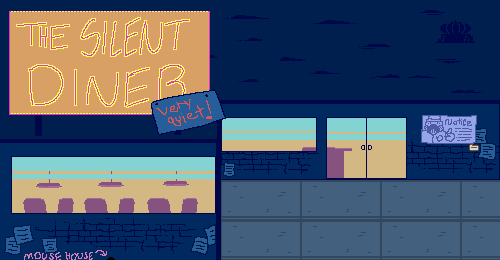 THE SILENT
DINER
very
quiet!
Notice
MOUSE HOUSE